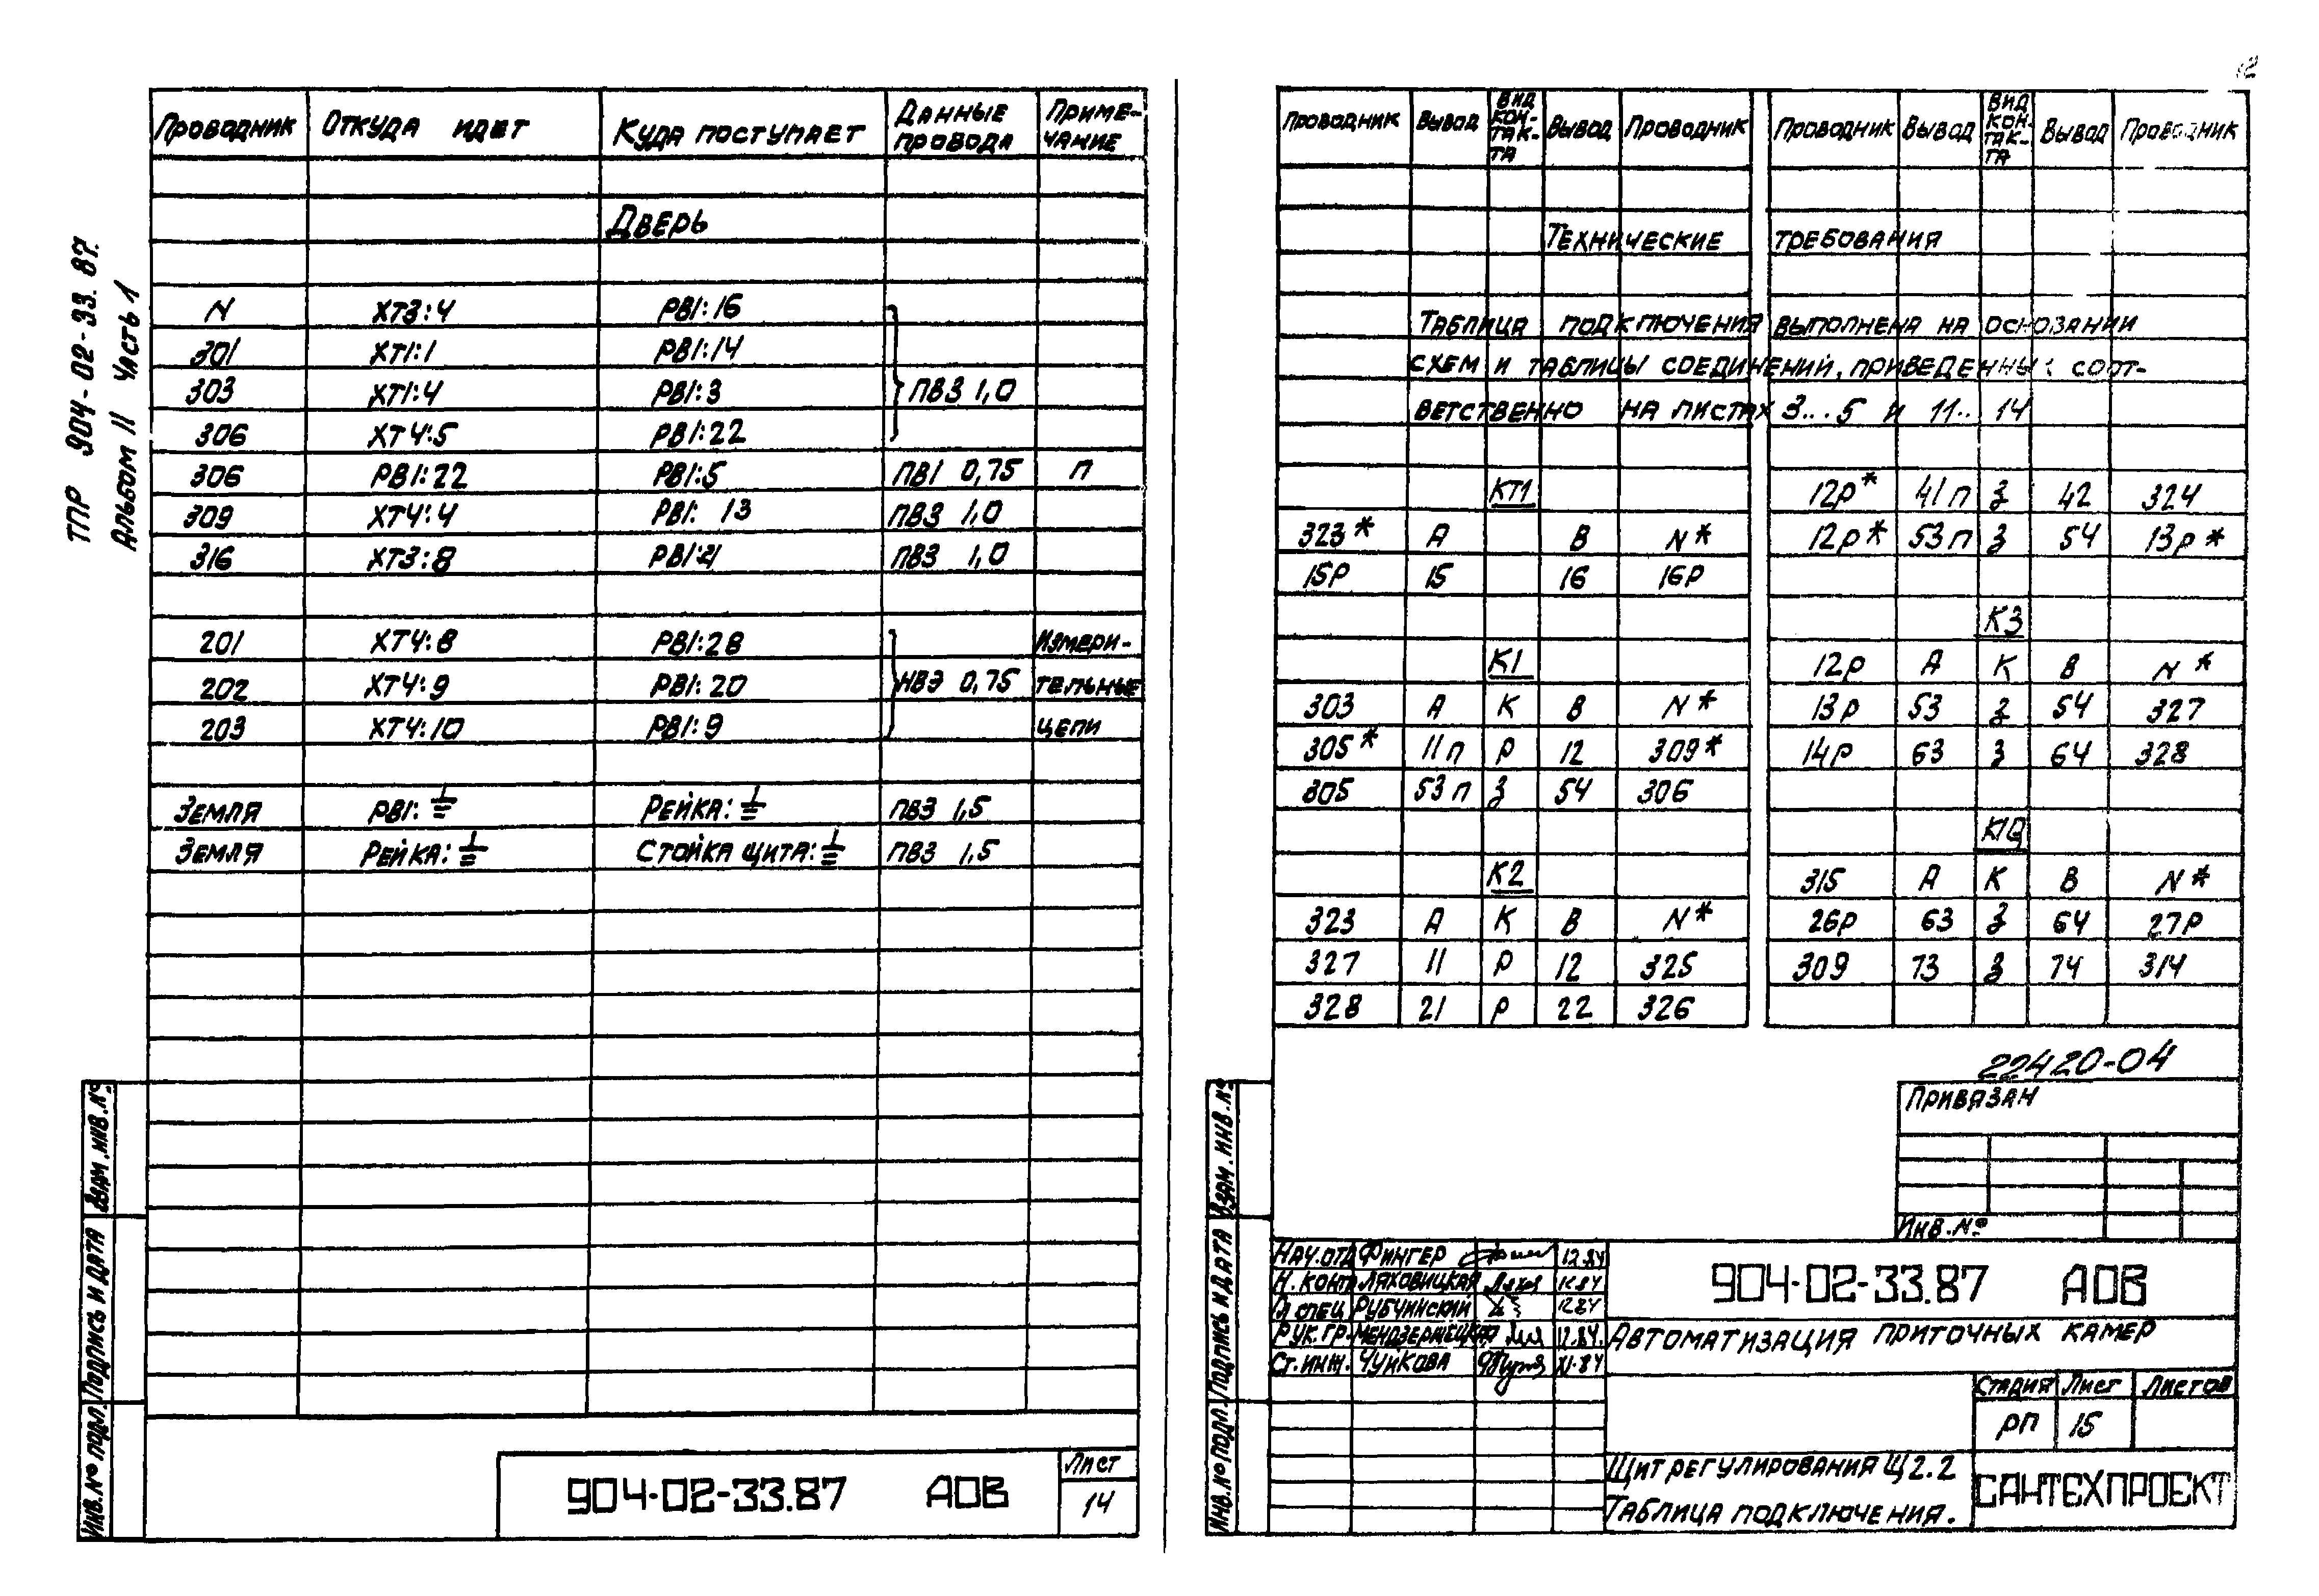 12
ТПР 904-02-33.87.
Альбом II Часть 1
Проводник Откуда идет Куда поступает Данные провода Примечание
Дверь
N ХТ3:4 РВ1:16
301 ХТ1:1 РВ1:14
303 ХТ1:4 РВ1:3 ПВ3 1,0
306 ХТ4:5 РВ1:22
306 РВ1:22 РВ1:5 ПВ1 0,75 П
309 ХТ4:4 РВ1: 13 ПВ3 1,0
316 ХТ3:8 РВ1:21 ПВ3 1,0
201 ХТ4:8 РВ1:28 Измери-
202 ХТ4:9 РВ1:20 НВЭ 0,75 тельные
203 ХТ4:10 РВ1:9 цепи
Земля РВ1:⏚ Рейка:⏚ ПВ3 1,5
Земля Рейка:⏚ Стойка щита:⏚ ПВ3 1,5
Взам.инв.№
Подпись и дата
Инв.№ подл.
904-02-33.87 АОВ
Лист
14
Проводник Вывод Вид контакта Вывод Проводник
Проводник Вывод Вид контакта Вывод Проводник
Технические требования
Таблица подключения выполнена на основании
схем и таблицы соединений, приведенных соот-
ветственно на листах 3...5 и 11.. 14
КТ1
323* А В N*
15Р 15 16 16Р
К1
303 А К В N*
305* 11п Р 12 309*
305 53п З 54 306
К2
323 А К В N*
327 11 Р 12 325
328 21 Р 22 326
12р* 41п З 42 324
12р* 53п З 54 13р*
К3
12р А К В N*
13р 53 З 54 327
14р 63 З 64 328
К10
315 А К В N*
26Р 63 З 64 27Р
309 73 З 74 314
22420-04
Привязан
Инв.№
Взам.инв.№
Подпись и дата
Инв.№ подл.
Нач.отд Фингер 12.84
Н.конт Ляховицкая 12.84
Гл спец Рубчинский 12.84
Рук.гр. Мендзержецкая 12.84.
Ст.инж. Чуйкова XI-84
904-02-33.87 АОВ
Автоматизация приточных камер
Стадия Лист Листов
РП 15
Щит регулирования Щ2.2
Таблица подключения.
САНТЕХПРОЕКТ